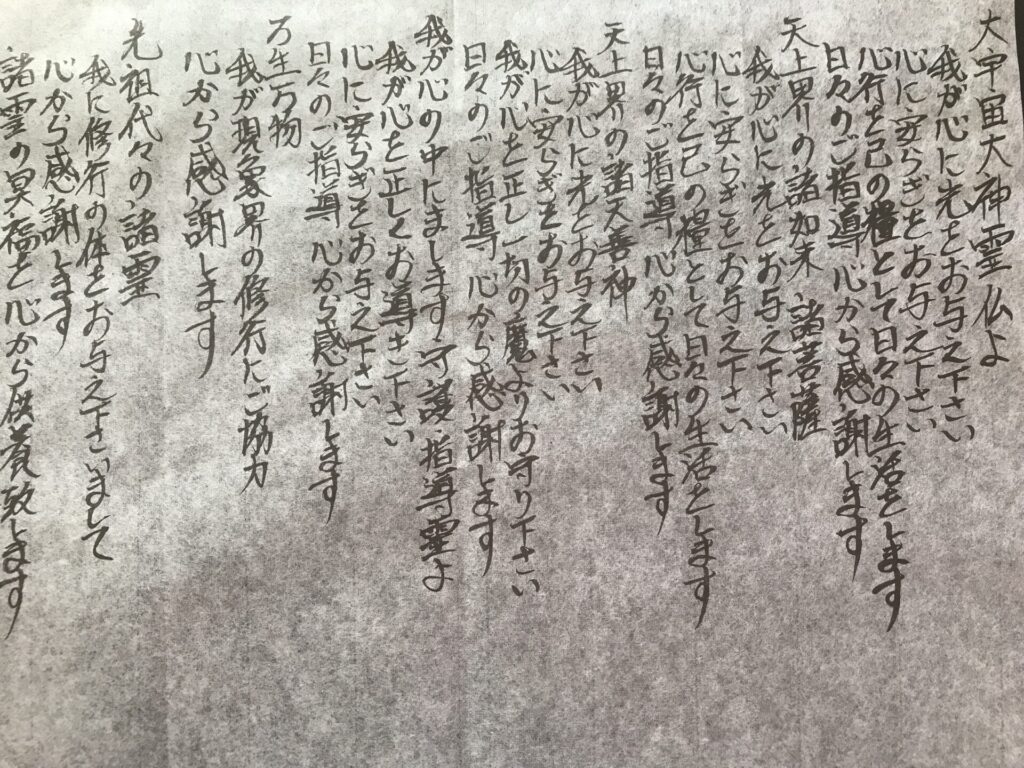 大宇宙大神霊仏よ
我が心に光をお与え下さい
心に安らぎをお与え下さい
心行を己の糧として日々の生活をします
日々のご指導心から感謝します
天上界の諸如来 諸菩薩
我が心に光をお与え下さい
心に安らぎをお与え下さい
心行を己の糧として日々の生活をします
日々のご指導 心から感謝します
天上界の諸天善神
我が心に光をお与え下さい
心に安らぎをお与え下さい
我が心を正し一切の魔よりお守り下さい
日々のご指導 心から感謝します
我が心の中にまします守護・指導霊よ
我が心を正しくお導き下さい
心に安らぎをお与え下さい
日々のご指導 心から感謝します
万生万物
我が現象界の修行にご協力
心から感謝します
先祖代々の諸霊
我に修行の体をお与え下さいまして
心から感謝します
諸霊の冥福を心から供養致します